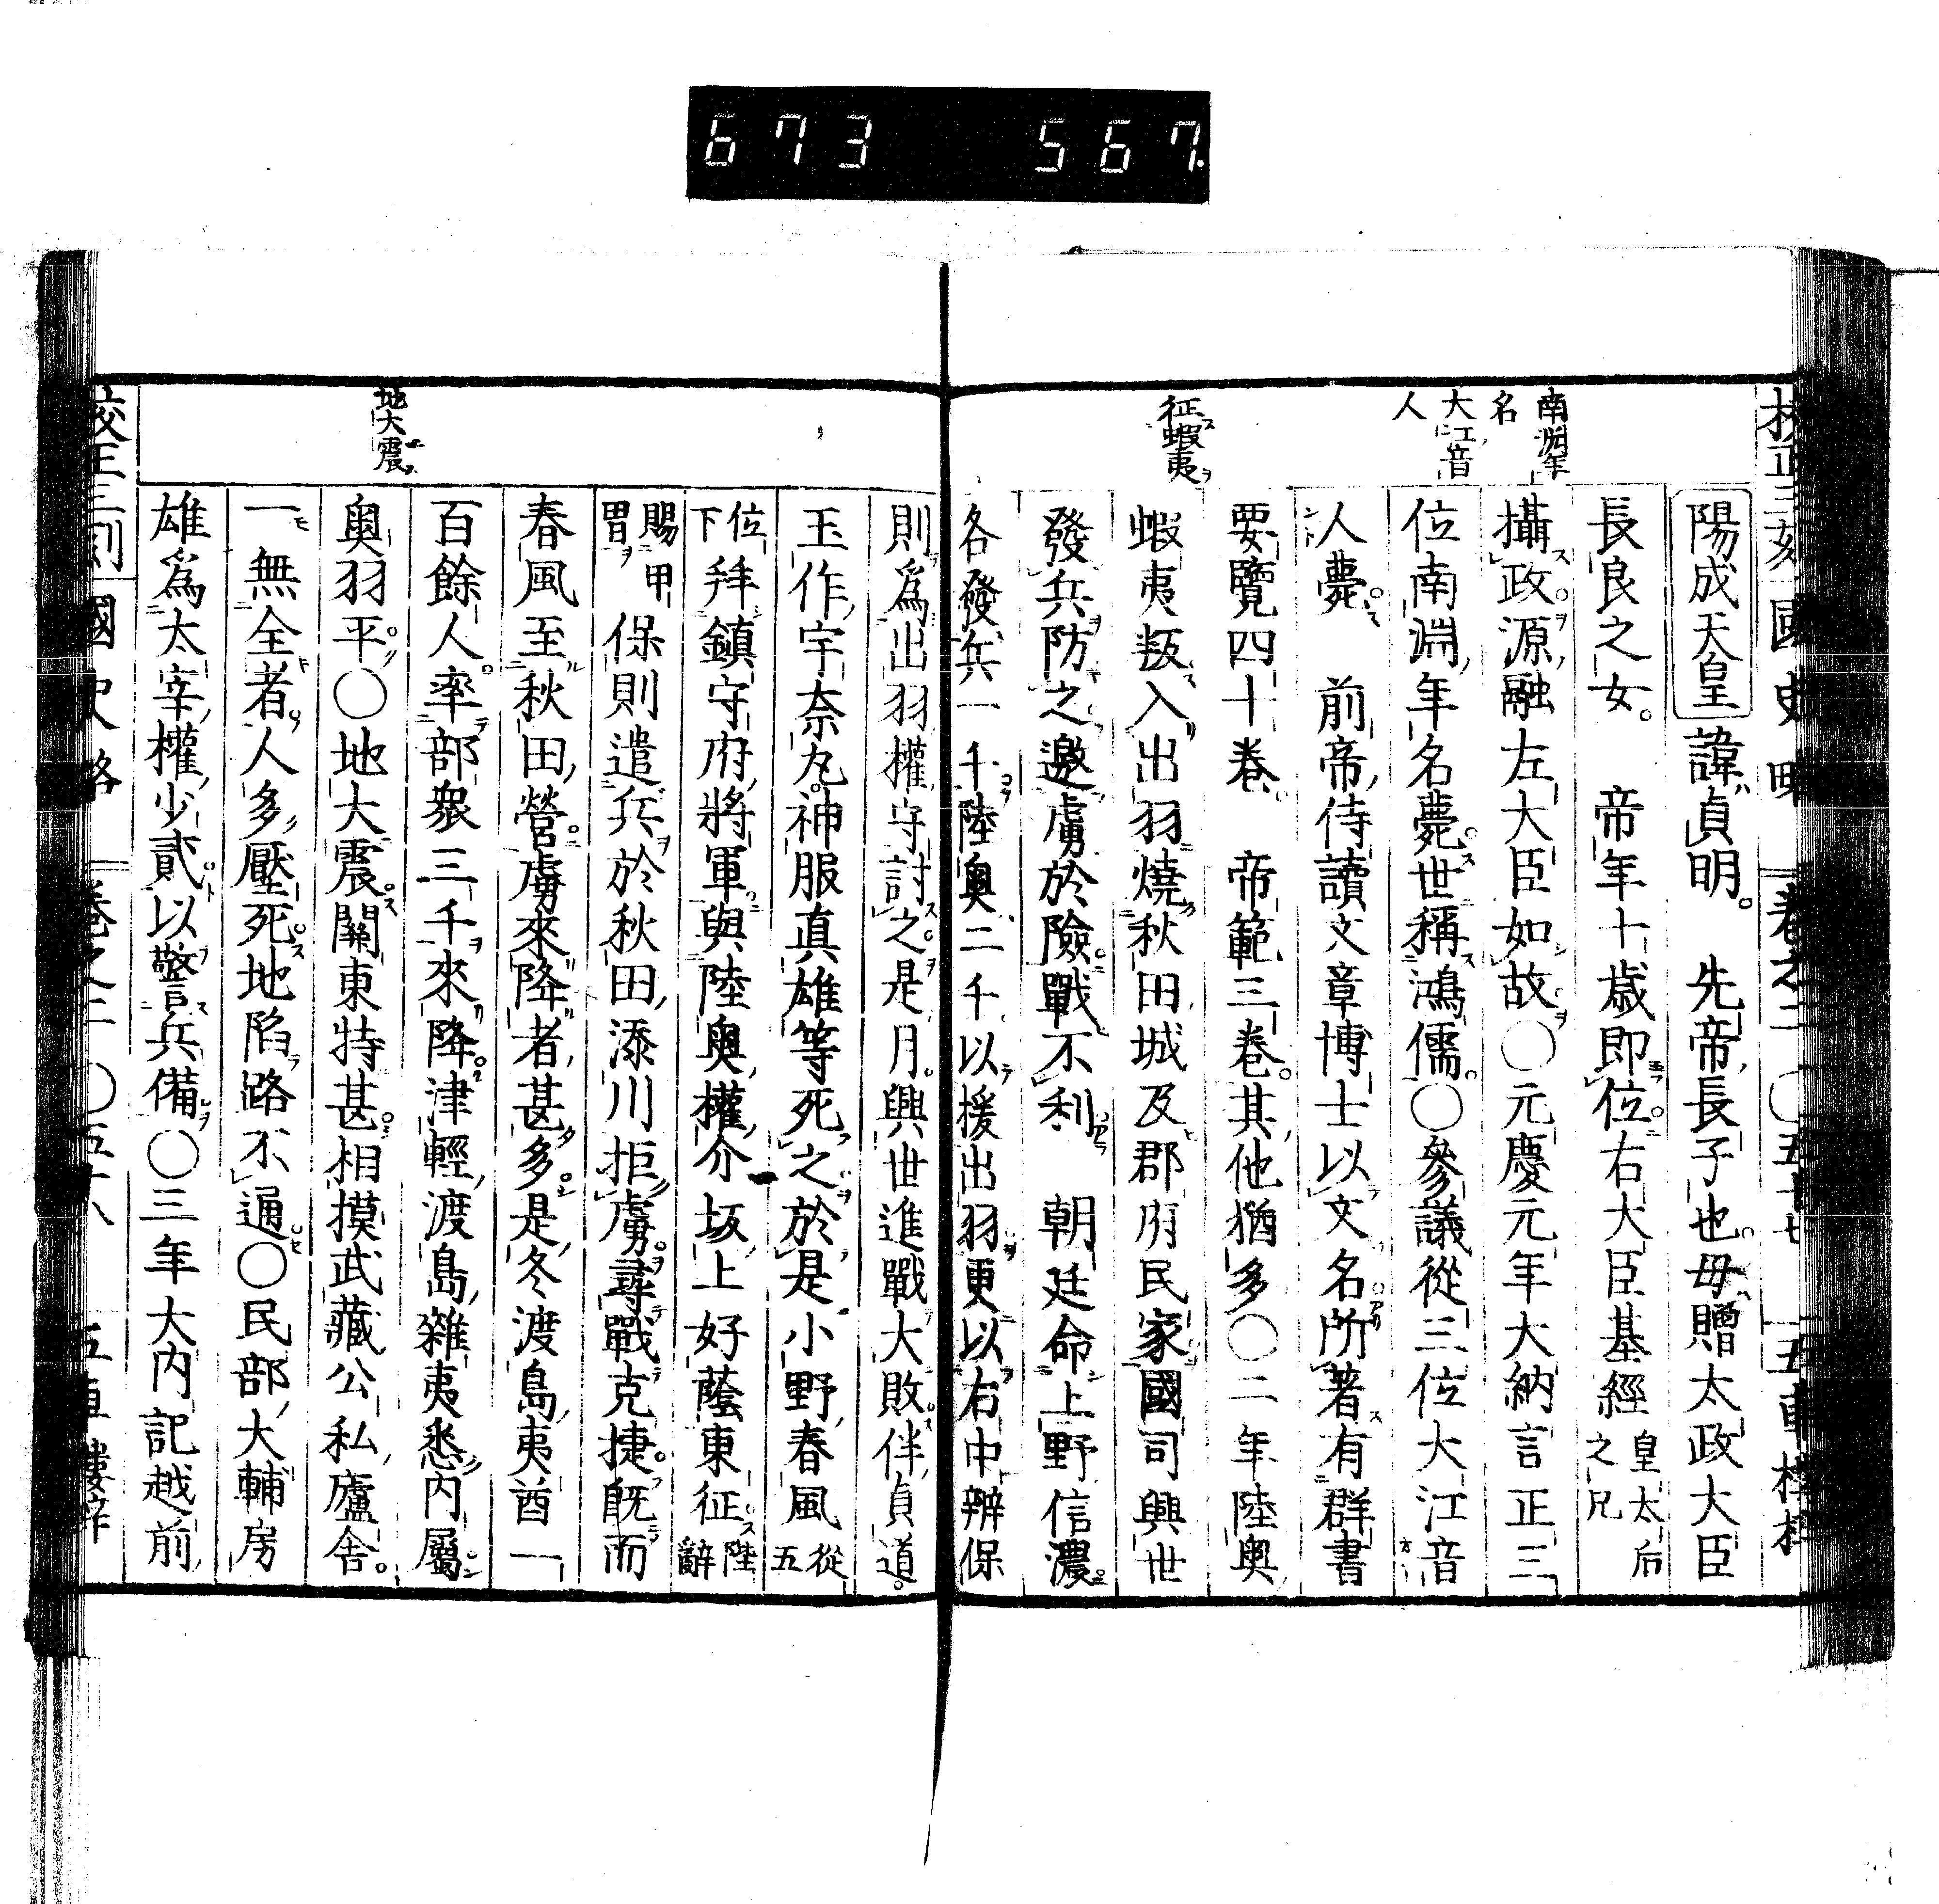 673 567
南淵年
名
大江音
人
征蝦夷
陽成天皇諱貞明。先帝長子也母贈太政大臣
長良之女。帝年十歳即位右大臣基經皇太后之兄
攝政源融左大臣如故〇元慶元年大納言正三
位南淵年名薨世稱鴻儒〇參議從三位大江音
人薨前帝侍讀文章博士以文名所著有群書
要覽四十卷帝範三卷其他猶多〇二年陸奥
蝦夷叛入出羽燒秋田城及郡府民家國司興世
發兵防之邀虜於險戰不利朝廷命上野信濃
各發兵一千陸奥二千以援出羽更以右中辨保
地大震
則爲出羽權守討之是月興世進戰大敗伴貞道。
玉作宇奈丸神服真雄等死之於是小野春風從五
位下拜鎮守府將軍與陸奥權介坂上好蔭東征陛辭
賜甲冑保則遣兵於秋田添川拒虜尋戰克捷既而
春風至秋田營虜來降者甚多是冬渡島夷酋一
百餘人率部衆三千來降津輕渡島雜夷悉内屬
奥羽平〇地大震關東特甚相摸武藏公私廬舎。
一無全者人多壓死地陷路不通〇民部大輔房
雄爲太宰權少貳以警兵備〇三年大内記越前